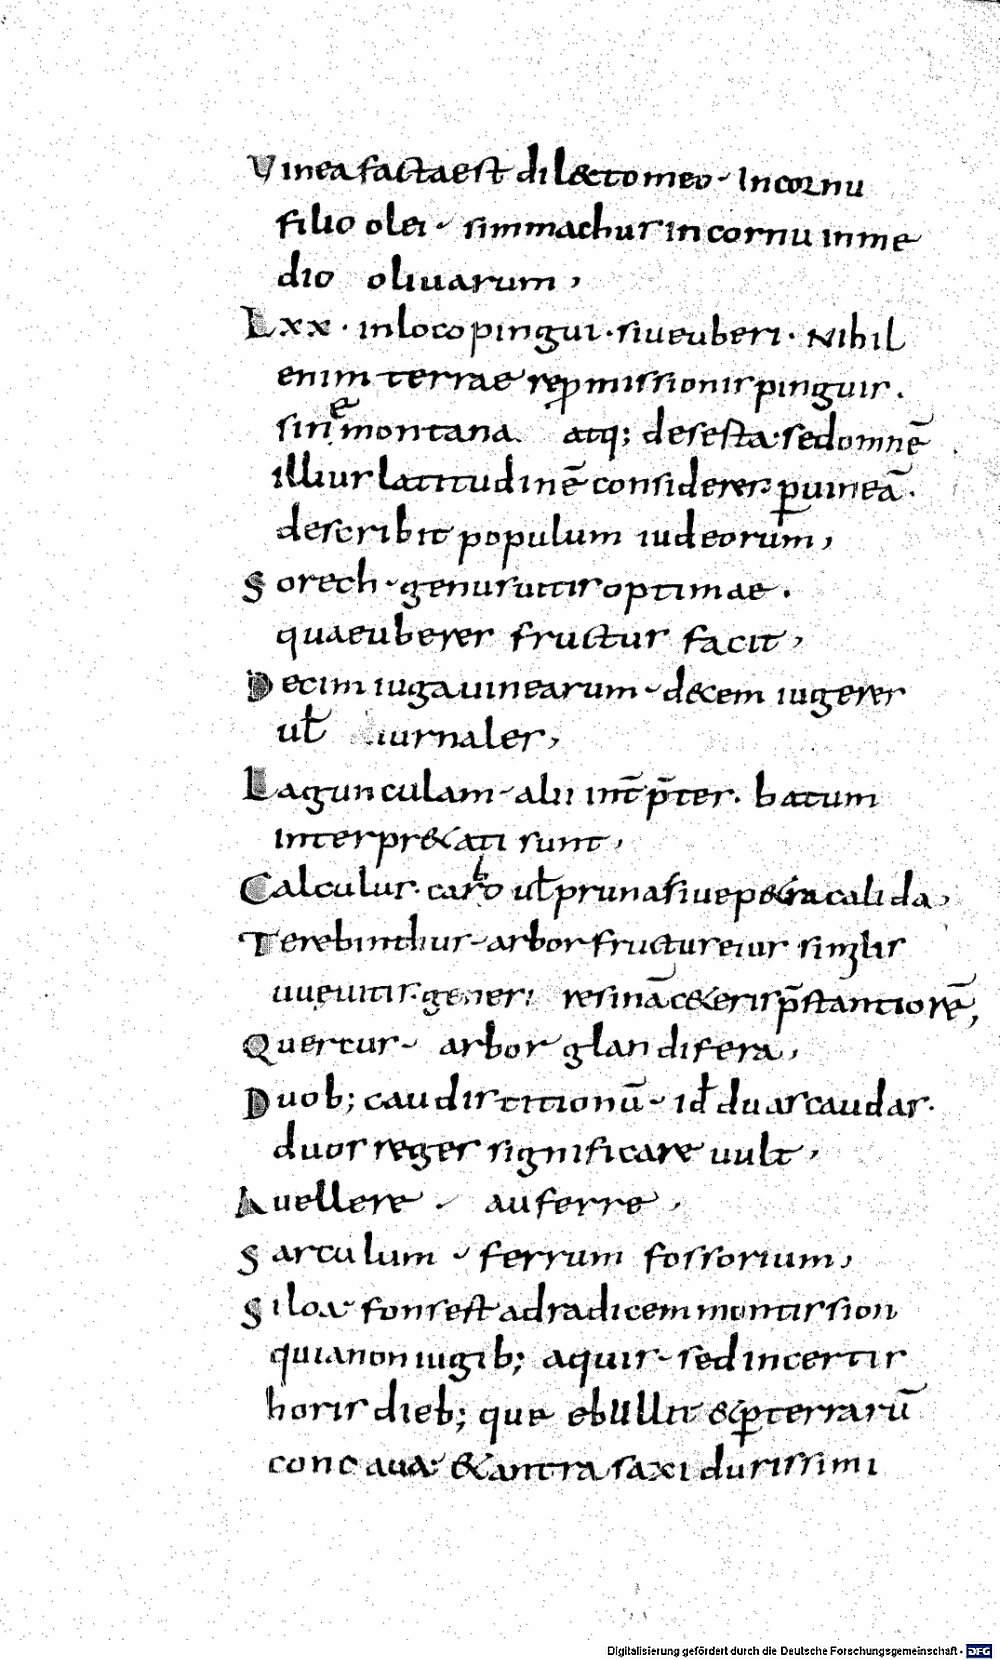 Vinea facta est dil&to meo. In cornu
filio olei. simmachus in cornu in me
dio olivarum,
Lxx. in loco pingui. sive uberi. Nihil
enim terrae repmissionis pinguis.
sin montana atq; deserta: sed omnē
illius latitudinē consideres. p vineā.
describit populum iudeorum,
Sorech. genus vitis optimae.
quae uberes fructus facit,
Decim iuga vinearum. decem iugeres
ul iurnales,
Lagunculam. alii intp̄ter. batum
interpr&ati sunt,
Calculus. carbo ul pruna sive p&ra calida,
Terebinthus. arbor fructus eius similis
uvę vitis. generi resinā c&eris p̄stantiorē,
Quercus. arbor glandifera,
Duob; caudis titionū. id duas caudas.
duos reges significare vult,
Avellere. auferre,
Sarculum. ferrum fossorium,
Siloa fons est ad radicem montis sion
quia non iugib; aquis. sed in certis
horis dieb; que ebullit & p terrarū
concava: & antra saxi durissimi
Digitalisierung gefördert durch die Deutsche Forschungsgemeinschaft - DFG